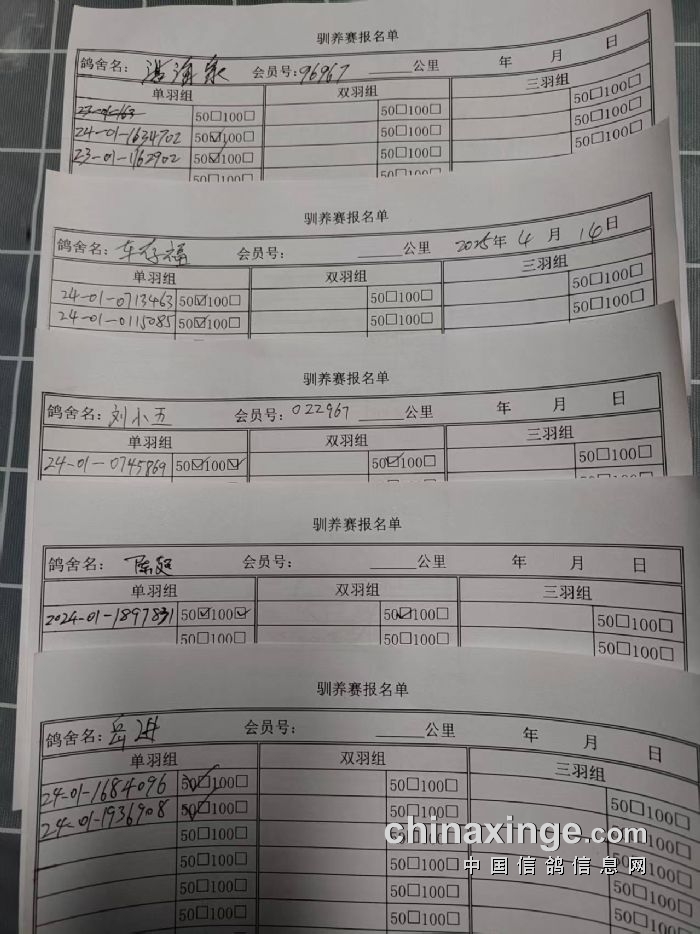 驯养赛报名单
鸽舍名： 会员号：96967 公里 年 月 日
单羽组 双羽组 三羽组
23-01-163 50□100□ 50□100□ 50□100□
24-01-1634702 50☑100□ 50□100□ 50□100□
23-01-1162902 50☑100□ 50□100□ 50□100□
50□100□ 50□100□
驯养赛报名单
鸽舍名：车存福 会员号： 公里 2025年 4 月 14日
单羽组 双羽组 三羽组
24-01-0713463 50☑100□ 50□100□ 50□100□
24-01-0115085 50☑100□ 50□100□ 50□100□
驯养赛报名单
鸽舍名：刘小五 会员号：022967 公里 年 月 日
单羽组 双羽组 三羽组
24-01-0745869 50☑100☑ 50☑100□ 50□100□
驯养赛报名单
鸽舍名：陈超 会员号： 公里 年 月 日
单羽组 双羽组 三羽组
2024-01-1897831 50☑100☑ 50☑100□ 50□100□
50□100□ 50□100□ 50□100□
驯养赛报名单
鸽舍名：岳进 会员号： 公里 年 月 日
单羽组 双羽组 三羽组
24-01-1684096 50☑100□ 50□100□ 50□100□
24-01-1936908 50☑100□ 50□100□ 50□100□
50□100□ 50□100□ 50□100□
50□100□ 50□100□ 50□100□
50□100□ 50□100□ 50□100□
50□100□ 50□100□ 50□100□
chinaxinge.com
中国信鸽信息网